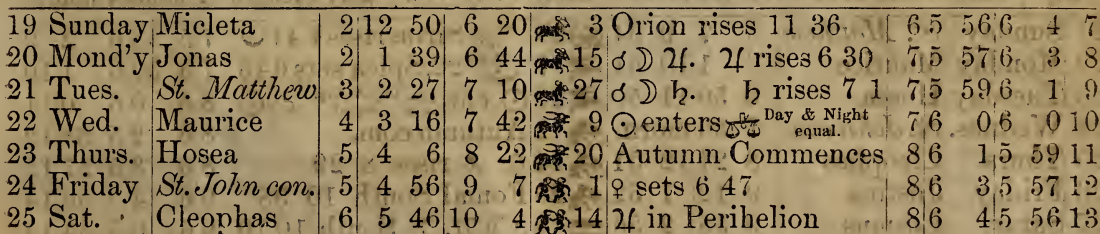 19 Sunday Micleta 2 12 50 6 20 3 Orion rises 11 36 6 5 56 6 4 7
20 Mond'y Jonas 2 1 39 6 44 15 ☌ ☽ ♃. ♃ rises 6 30 7 5 57 6 3 8
21 Tues. St. Matthew 3 2 27 7 10 27 ☌ ☽ ♄. ♄ rises 7 1 7 5 59 6 1 9
22 Wed. Maurice 4 3 16 7 42 9 ☉ enters ♎ Day & Night equal. 7 6 0 6 0 10
23 Thurs. Hosea 5 4 6 8 22 20 Autumn Commences 8 6 1 5 59 11
24 Friday St. John con. 5 4 56 9 7 1 ♀ sets 6 47 8 6 3 5 57 12
25 Sat. Cleophas 6 5 46 10 4 14 ♃ in Perihelion 8 6 4 5 56 13